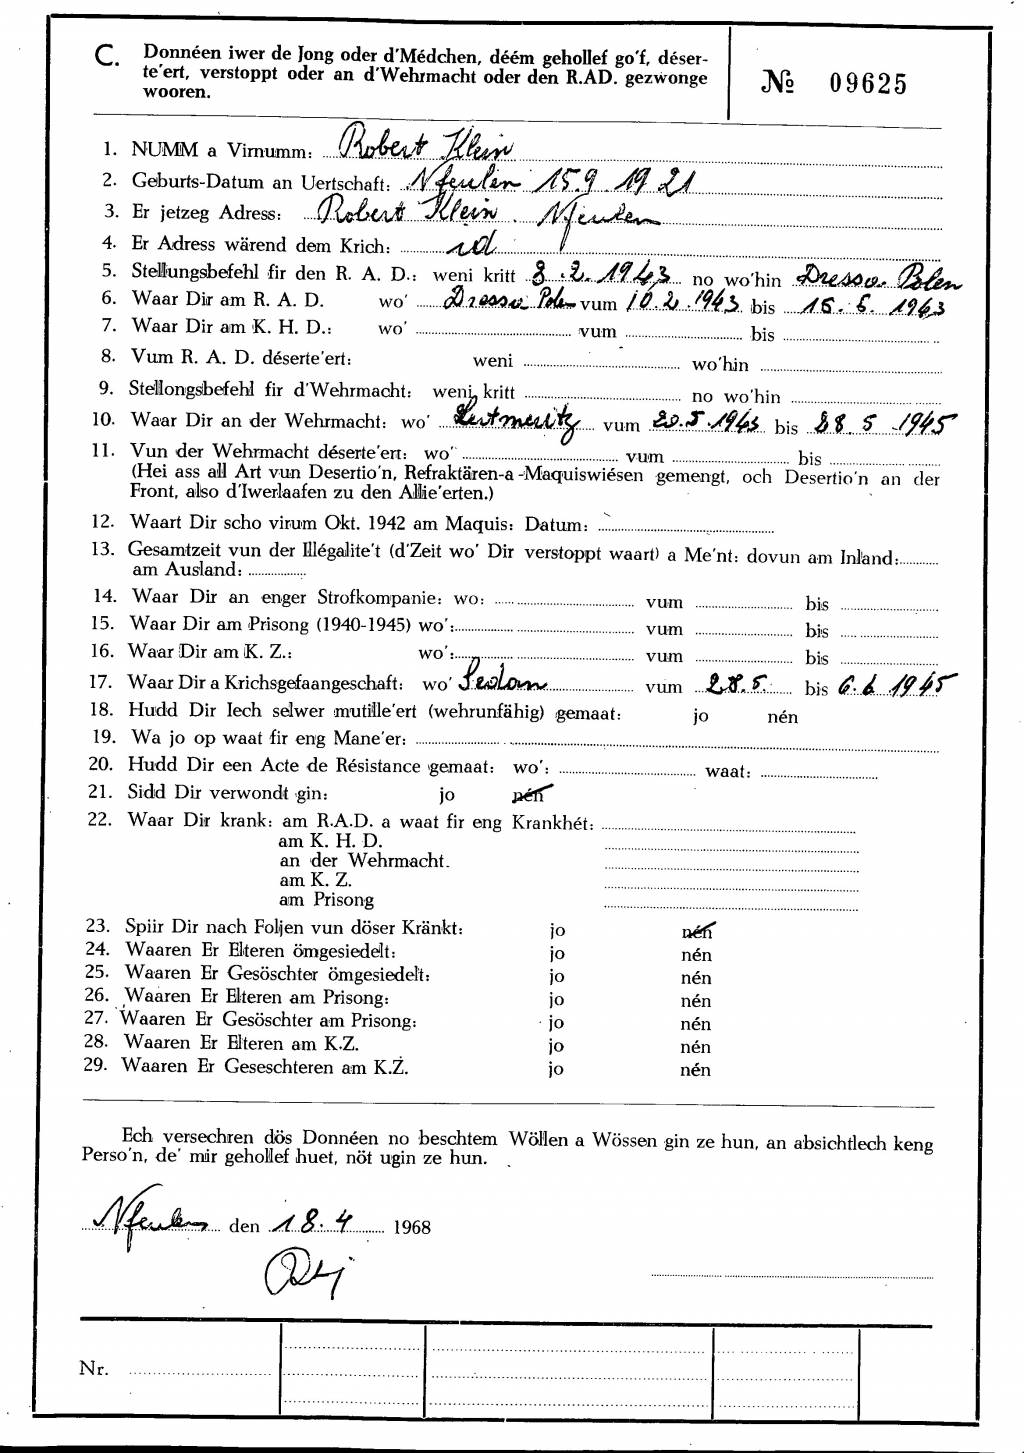 C. Donnéen iwer de Jong oder d'Médchen, déém gehollef go'f, déser-
te'ert, verstoppt oder an d'Wehrmacht oder den R.AD. gezwonge
wooren.
№ 09625
1. NUMM a Virnumm: Robert Klein
2. Geburts-Datum an Uertschaft: Nfeulen 15.9 1921
3. Er jetzeg Adress: Robert Klein. Nfeulen
4. Er Adress wärend dem Krich: id
5. Stellungsbefehl fir den R. A. D.: weni kritt 8.2.1943 no wo'hin Dresso. Polen
6. Waar Dir am R. A. D. wo' Dresso Polen vum 10.2.1943 bis 15.5.1943
7. Waar Dir am K. H. D.: wo' vum bis
8. Vum R. A. D. déserte'ert: weni wo'hin
9. Stellongsbefehl fir d'Wehrmacht: weni kritt no wo'hin
10. Waar Dir an der Wehrmacht: wo' Leitmeritz vum 20.5.1943 bis 28.5.1945
11. Vun der Wehrmacht déserte'ert: wo' vum bis
(Hei ass all Art vun Desertio'n, Refraktären-a-Maquiswiésen gemengt, och Desertio'n an der
Front, also d'Iwerlaafen zu den Allie'erten.)
12. Waart Dir scho virum Okt. 1942 am Maquis: Datum:
13. Gesamtzeit vun der Illégalite't (d'Zeit wo' Dir verstoppt waart) a Me'nt: dovun am Inland:
am Ausland:
14. Waar Dir an enger Strofkompanie: wo: vum bis
15. Waar Dir am Prisong (1940-1945) wo': vum bis
16. Waar Dir am K. Z.: wo': vum bis
17. Waar Dir a Krichsgefaangeschaft: wo' Sedan vum 28.5. bis 6.6 1945
18. Hudd Dir Iech selwer mutille'ert (wehrunfähig) gemaat: jo nén
19. Wa jo op waat fir eng Mane'er:
20. Hudd Dir een Acte de Résistance gemaat: wo': waat:
21. Sidd Dir verwondt gin: jo nén
22. Waar Dir krank: am R.A.D. a waat fir eng Krankhét:
am K. H. D.
an der Wehrmacht.
am K. Z.
am Prisong
23. Spiir Dir nach Foljen vun döser Kränkt: jo nén
24. Waaren Er Elteren ömgesiedelt: jo nén
25. Waaren Er Gesöschter ömgesiedelt: jo nén
26. Waaren Er Elteren am Prisong: jo nén
27. Waaren Er Gesöschter am Prisong: jo nén
28. Waaren Er Elteren am K.Z. jo nén
29. Waaren Er Geseschteren am K.Z. jo nén
Ech versechren dös Donnéen no beschtem Wöllen a Wössen gin ze hun, an absichtlech keng
Perso'n, de' mir gehollef huet, nöt ugin ze hun.
Nfeulen den 18.4 1968
Nr.